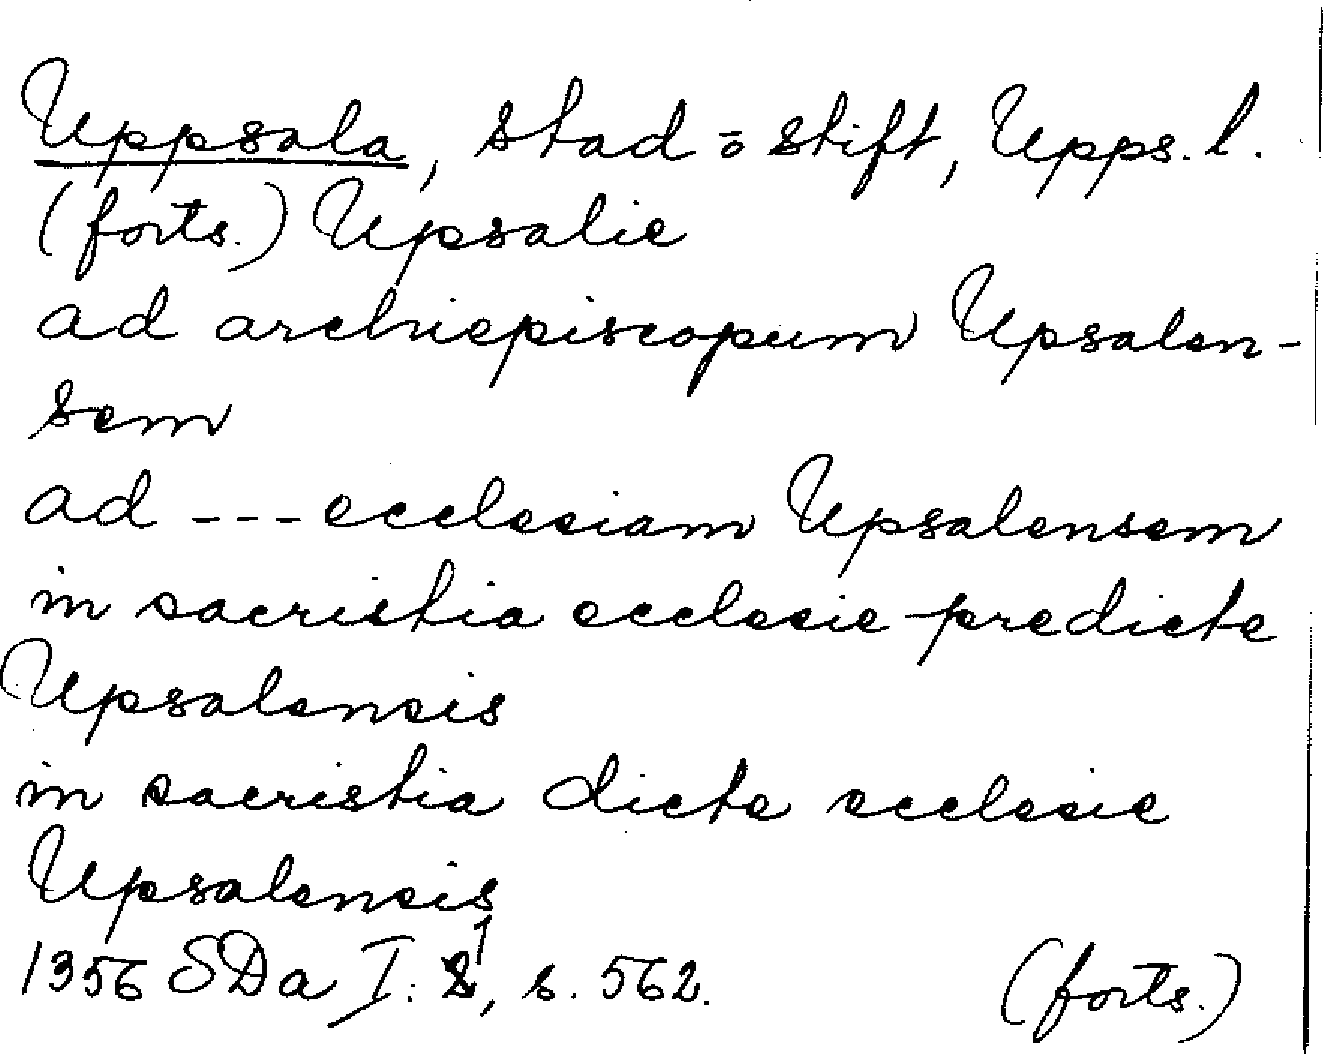 Uppsala, stad o stift, Upps. l.
(forts.) Upsalie
ad archiepiscopum Upsalen-
sem
ad --- ecclesiam Upsalensem
in sacristia ecclesie predicte
Upsalensis
in sacristia dicte ecclesie
Upsalensis
1356 SDa I: 1, s. 562. (forts.)